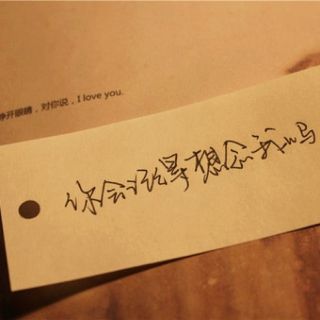 睁开眼睛，对你说，I love you.
你会经常想念我吗